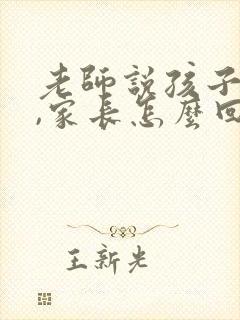 老師說孩子
,家長怎麼回
王新光